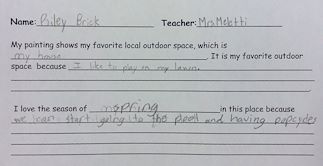 Name: Riley Brick Teacher: Mrs Melotti
My painting shows my favorite local outdoor space, which is
my house. It is my favorite outdoor
space because I like to play on my lawn.
I love the season of spring in this place because
we can start going to the pool and having popcycles